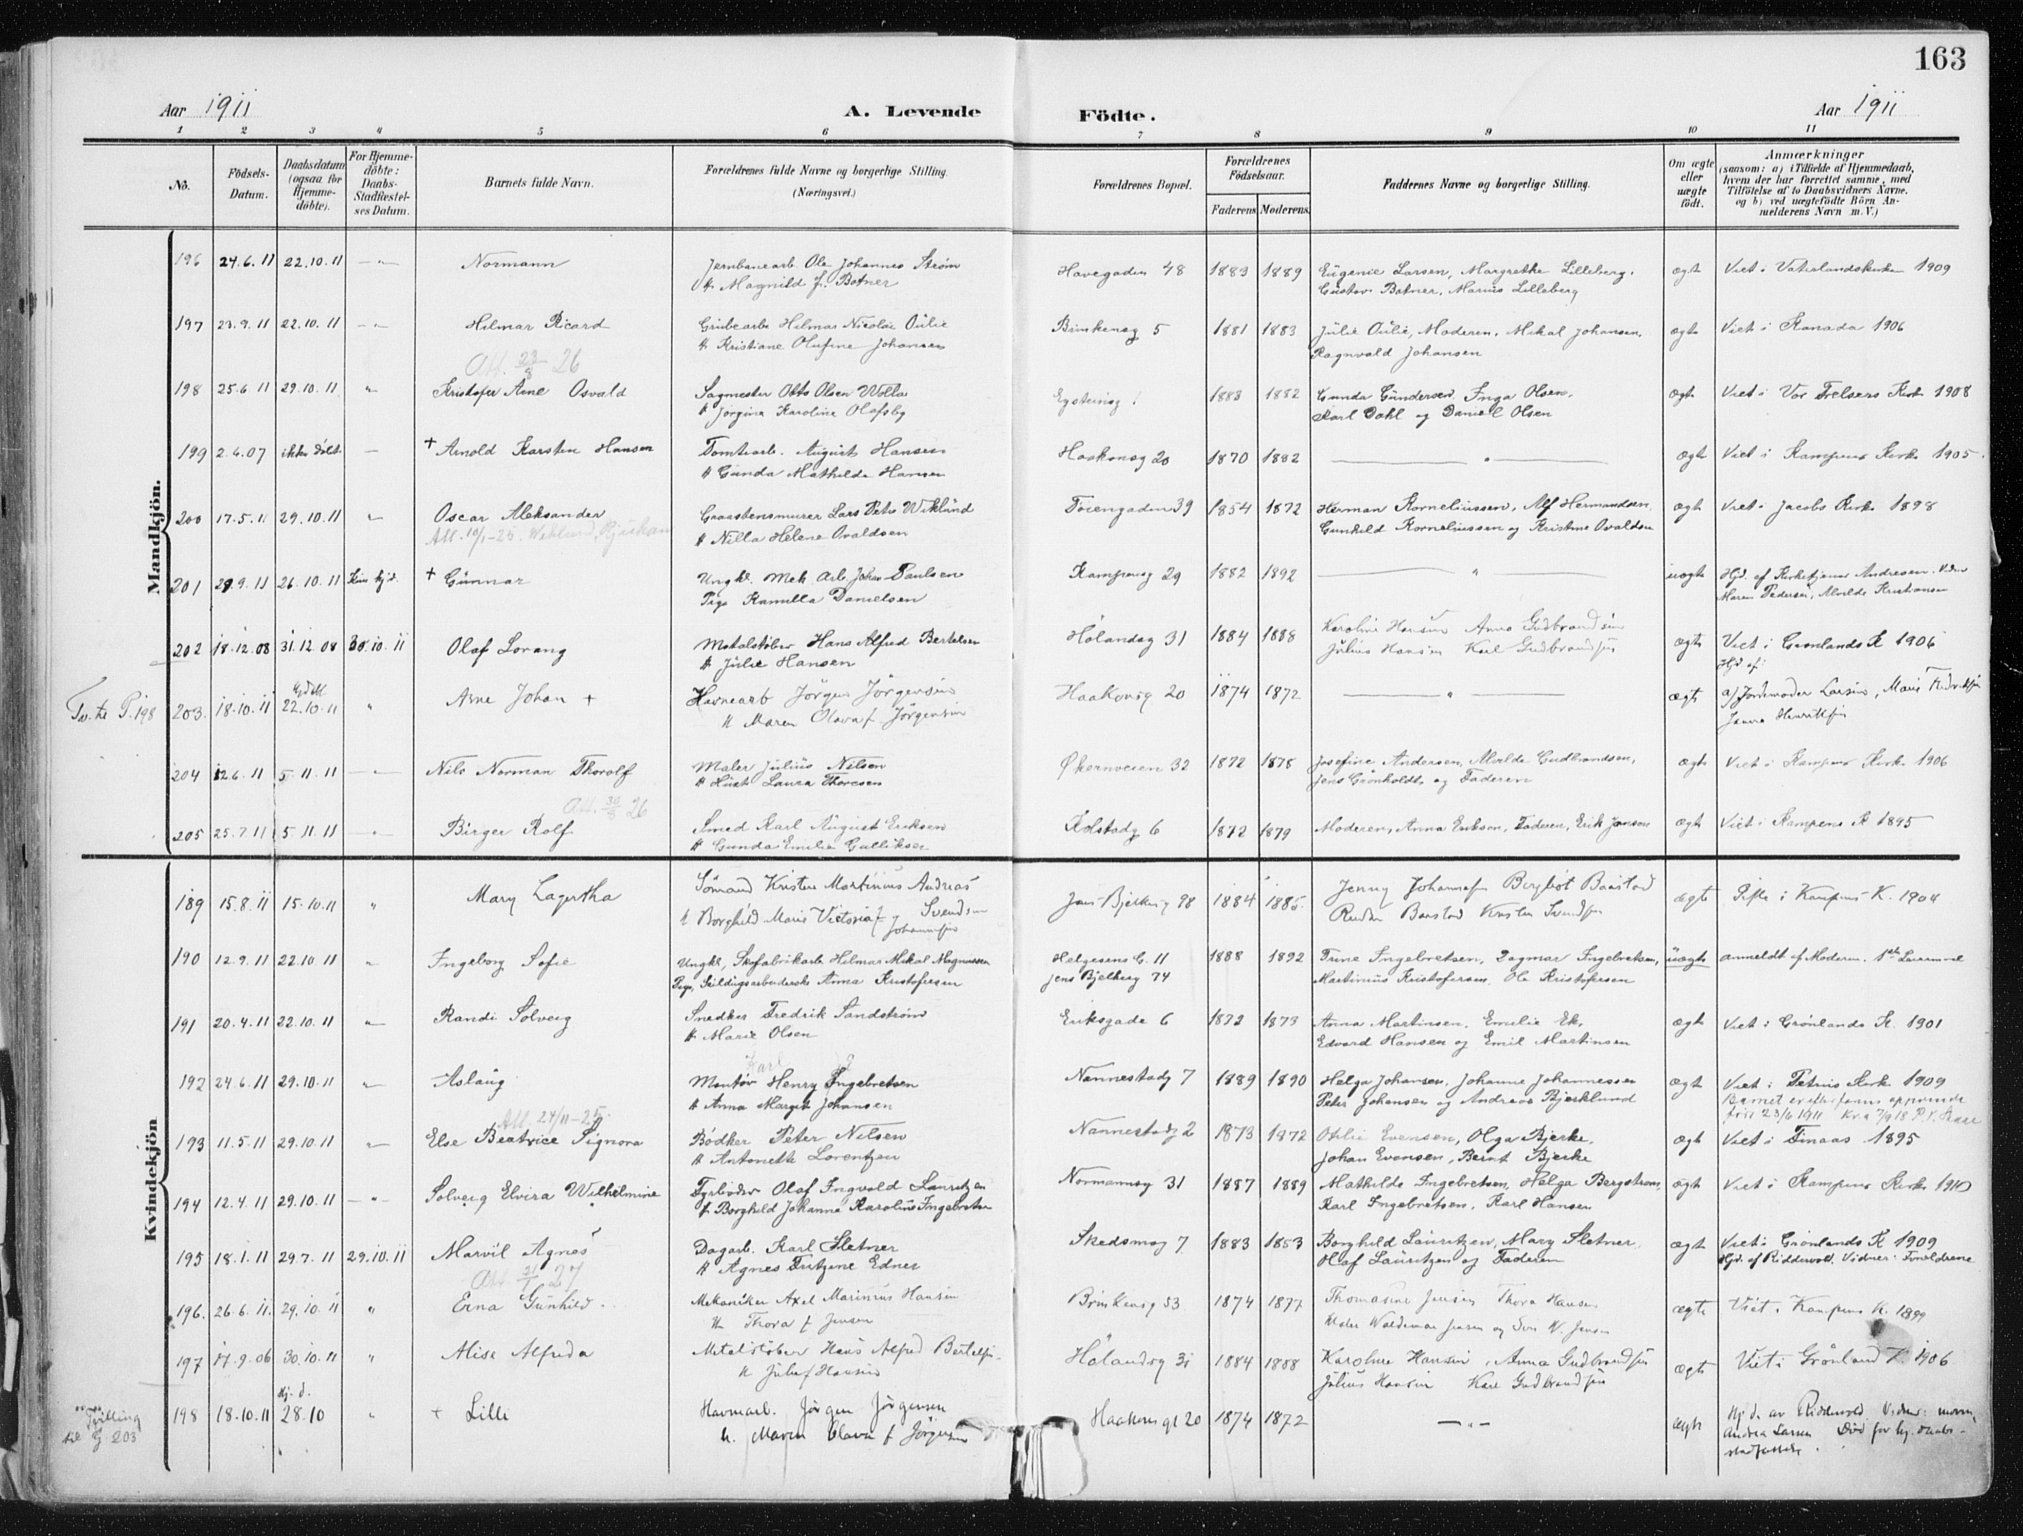 163
Aar 1911
A. Levende
Födte.
Aar 1911
1 2 3 4 5 6 7 8 9 10 11
No.
Födsels-Datum.
Daabsdatum (ogsaa for Hjemme-döbte).
For Hjemme-döbte: Daabs-Stadfæstel-ses Datum.
Barnets fulde Navn.
Forældrenes fulde Navne og borgerlige Stilling.
(Næringsvei.)
Forældrenes Bopæl.
Forældrenes Födselsaar.
Faderens Moderens
Faddernes Navne og borgerlige Stilling.
Om ægte eller uægte födt.
Anmærkninger
(saasom: a) i Tilfælde af Hjemmedaab,
hvem der har forrettet samme, med
Tilföielse af to Daabsvidners Navne,
og b) ved uægtefödte Börn An-
melderens Navn m. V.)
Mandkjön.
196 24.6.11 22.10.11 — " — Normann Jernbanearb. Ole Johannes Strøm Havegaden 48 1883 1889 Eugenie Larsen, Margrethe Lilleberg, ægte Viet i Vaterlandskirken 1909
H. Magnild f. Botner Gustav Botner, Marius Lilleberg
197 23.9.11 22.10.11 — " — Hilmar Ricard Hilmar Nicolai Oulie 5 1881 1883 Julie Oulie, Moderen, Mikal Johansen, ægte Viet i Kanada 1906
H. Kristiane Olufine Johansen Ragnvald Johansen
Att. 23/8 26
198 25.6.11 29.10.11 " Kristofer Arne Osvald Sagmester Otto Olsen Wolla 1883 1882 Gunda Gundersen, Inga Olsen, ægte Viet i Vor Frelsers Kirke 1908
H. Jørgine Karoline Olafsby Karl Dahl og Daniel Olsen
199 2.6.07 ikke døbt — + Arnold Karsten Hansen Tomtearb. August Hansen Haakonsg 20 1870 1882 — " — ægte Viet i Kampens Kirke 1905.
H. Gunda Mathilde Hansen
200 17.5.11 29.10.11 " Oscar Aleksander Graastensmurer Lars Petro Wiklund Tøiengaden 39 1854 1872 Herman Korneliussen, Alf Hermundsen, ægte Viet i Jacobs Kirke 1898
Att. 10/1-25. H. Nilla Helene Ovaldsen Gunhild Korneliussen og Kristine Ovaldsen
201 29.9.11 26.10.11 Kun hj.d. + Gunnar Ungk. Mek. Arb. Johan Paulsen Kampensg 29 1882 1892 — " — uægte Hjd. af Kirketjener Andresen. Vidner
Pige Kamilla Danielsen Maren Pedersen, Alvilde Kristiansen
202 18.12.08 31.12.08 30.10.11 Olaf Lorang Metalstøber Hans Alfred Bertelsen Hølandsg 31 1884 1888 Karoline Hansen Anna Gudbrandsen ægte Viet i Grønlands K 1906
H. Julie Hansen Julius Hansen Karl Gudbrandsen Hjd. af:
Tv. til P. 198 203. 18.10.11 22.10.11 " Arne Johan + Havnearb Jørgen Jørgensen Haakonsg 20 1874 1872 — " — ægte a/ Jordmoder Larsen,
H. Maren Olava f. Jørgensen
204 12.6.11 5.11.11 — " — Nils Norman Thorolf Maler Julius Nilsen Økernveien 32 1872 1878 Josefine Andersen, Alvilde Gudbrandsen, ægte Viet i Kampens Kirke 1906
H. Laura Thoresen Jens Grønholdt og Faderen
Att. 30/3 26
205 25.7.11 5.11.11 — " — Birger Rolf Smed Karl August Eriksen Kolstadg 6 1872 1879 Moderen, Anna Eriksen, Faderen, Erik Jonsen ægte Viet i Kampens K 1895
H. Gunda Emilie Gulliksen
Kvindekjön
189 15.8.11 15.10.11 " Mary Lagertha Sömand Kristen Martinius Andreas Svendsen Jens Bjelkesg 98 1884 1885. Jenny Johannesen Borghot Baastad ægte i Kampens K. 1904
H. Borghild Marie Victoria f. Johannesen Baastad Kristen Svendsen
190 12.9.11 22.10.11 " Ingeborg Sofie Ungk., Skofabrikarb. Hilmar Mikal Magnussen Helgesens G. 11 1888 1892 Trine Ingebretsen, Dagmar Ingebretsen, uægte anmeldt af Moderen.
Pige, Anna Kristofersen Jens Bjelkesg 74 Martinius Kristofersen, Ole Kristofersen
191 20.4.11 22.10.11 " Randi Solveig Snedker Fredrik Sandstrøm Eriksgade 6 1872 1873 Anna Martinsen, Emilie Ek, ægte Viet i Grønlands K. 1901
H. Marie Olsen Edvard Hansen og Emil Martinsen
Karl
192 24.6.11 29.10.11 " Aslaug Montør Henry Ingebretsen Nannestadg 7 1889 1890 Helga Johansen, Johanne Johannessen ægte Viet i Petrus Kirke 1909
H. Anna Margit Johansen Peter Johansen og Andreas Bjerklund
Att. 24/11-25.
193 11.5.11 29.10.11 " Else Beatrice Signora Bødker Peter Nilsen Nannestadg 2 1873 1872 Othlie Evensen, Olga Bjerke, ægte Viet i Finaas 1895
H. Antonette Lorentzen Johan Evensen, Bernt Bjerke
194 12.4.11 29.10.11 — " — Solveig Elvira Wilhelmine Fyrbøder Olaf Ingvald Lauritzen Normannsg 31 1887 1889 Mathilde Ingebretsen, Helga Bergstrøm, ægte Viet i Kampens Kirke 1910
H. Borghild Johanna Karoline Ingebretsen Karl Ingebretsen, Karl Hansen
195 18.1.11 29.7.11 29.10.11 Marvil Agnes Dagarb. Karl Sletner Skedsmog 7 1883 1853 Borghild Lauritzen, Mary Sletner ægte Viet i Grønlands K 1909
H. Agnes Fritzine Edner Olaf Lauritzen og Faderen Hjd. af Riddervold. Vidner: Forældrene
196. 26.6.11. 29.10.11 " Erna Gunhild Mekaniker Axel Marinius Hansen Brinkensg 53 1874 1877 Thomasine Jensen Thora Hansen ægte Viet i Kampens K. 1899
H. Thora f. Jensen Waldemar Jensen og
197 17.9.06 30.10.11 " Alise Alfreda Metalstøber Hans Alfred Bertelsen Hølandsg 31 1884 1888 Karoline Hansen, Anna Gudbrandsen ægte Viet i Grønland K. 1906
H. Julie f. Hansen Julius Hansen Karl Gudbrandsen
Tvilling til G 203 198 18.10.11 Hj. d. 28.10 " + Lilli Havnearb. Jørgen Jörgensen Haakonsgt 20 1874 1872 — " — ægte Hj. d. av Riddervold Vidner:
H. Maren Olava f. Jørgensen Andrea Larsen Död før